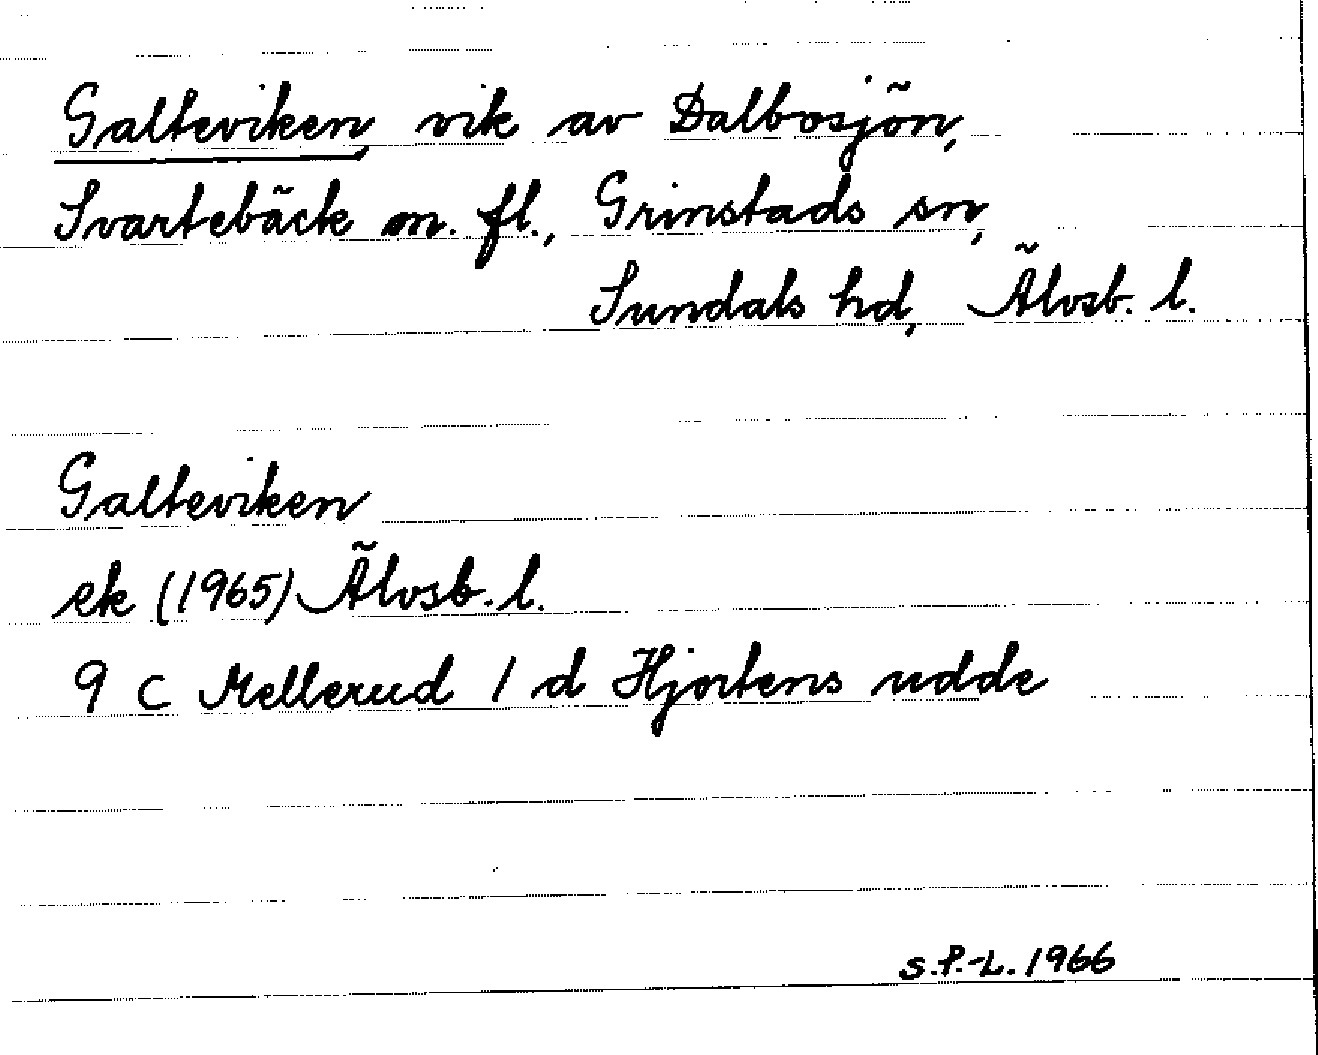 Galteviken, vik av Dalbosjön,
Svartebäck m. fl., Grinstads sn,
Sundals hd, Älvsb. l.
Galteviken
ek (1965) Älvsb. l.
9 C Mellerud 1 d Hjortens udde
S.P.-L. 1966